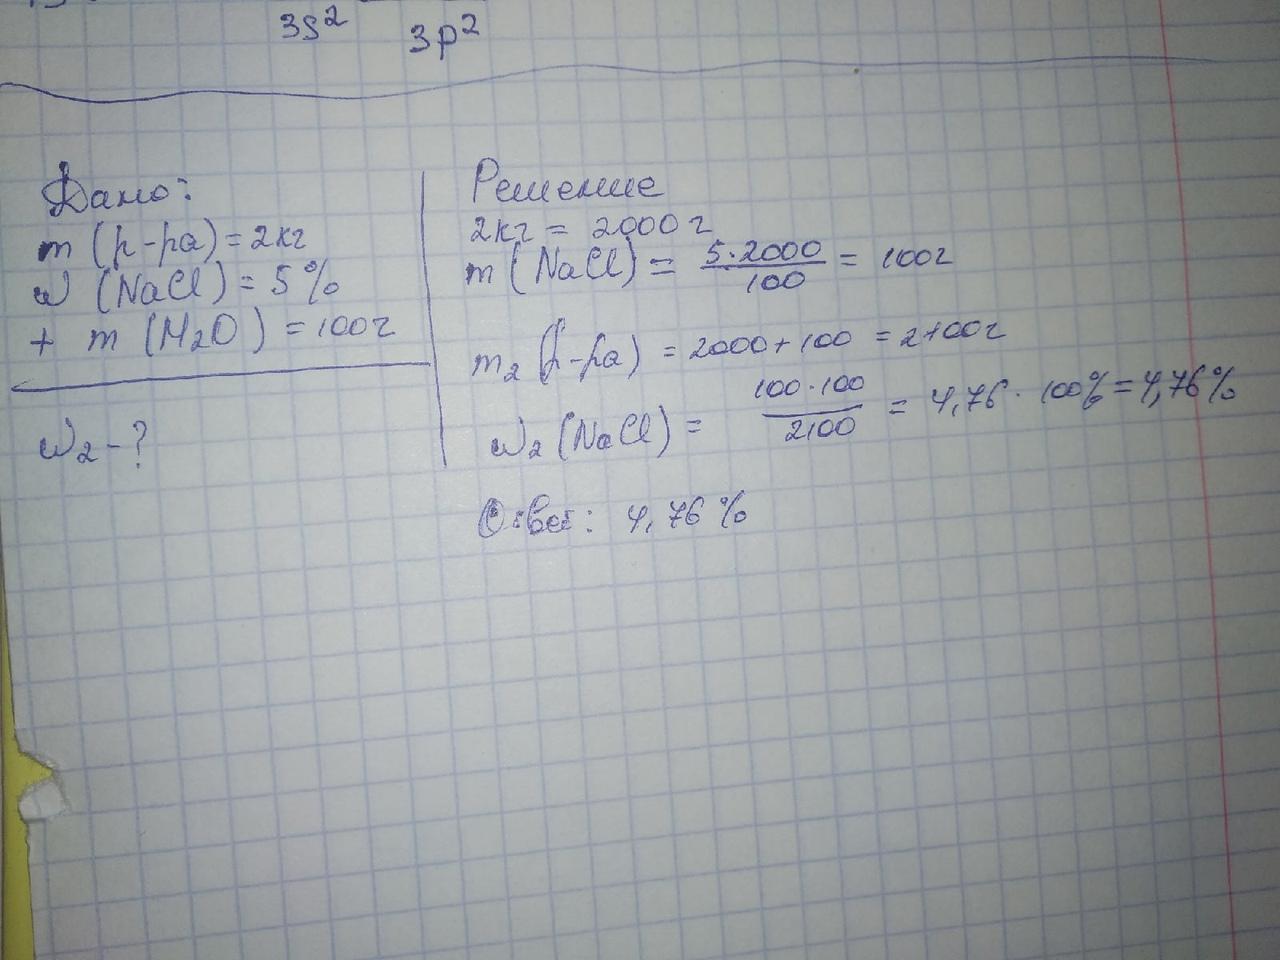 3s² 3p²
Дано:
m (р-ра) = 2кг
ω (NaCl) = 5%
+ m (H₂O) = 100г
ω₂ - ?
Решение
2кг = 2000г
m (NaCl) = 5·2000/100 = 100г
m₂ (р-ра) = 2000 + 100 = 2100г
ω₂ (NaCl) = 100·100/2100 = 4,76 · 100% = 4,76%
Ответ: 4,76%